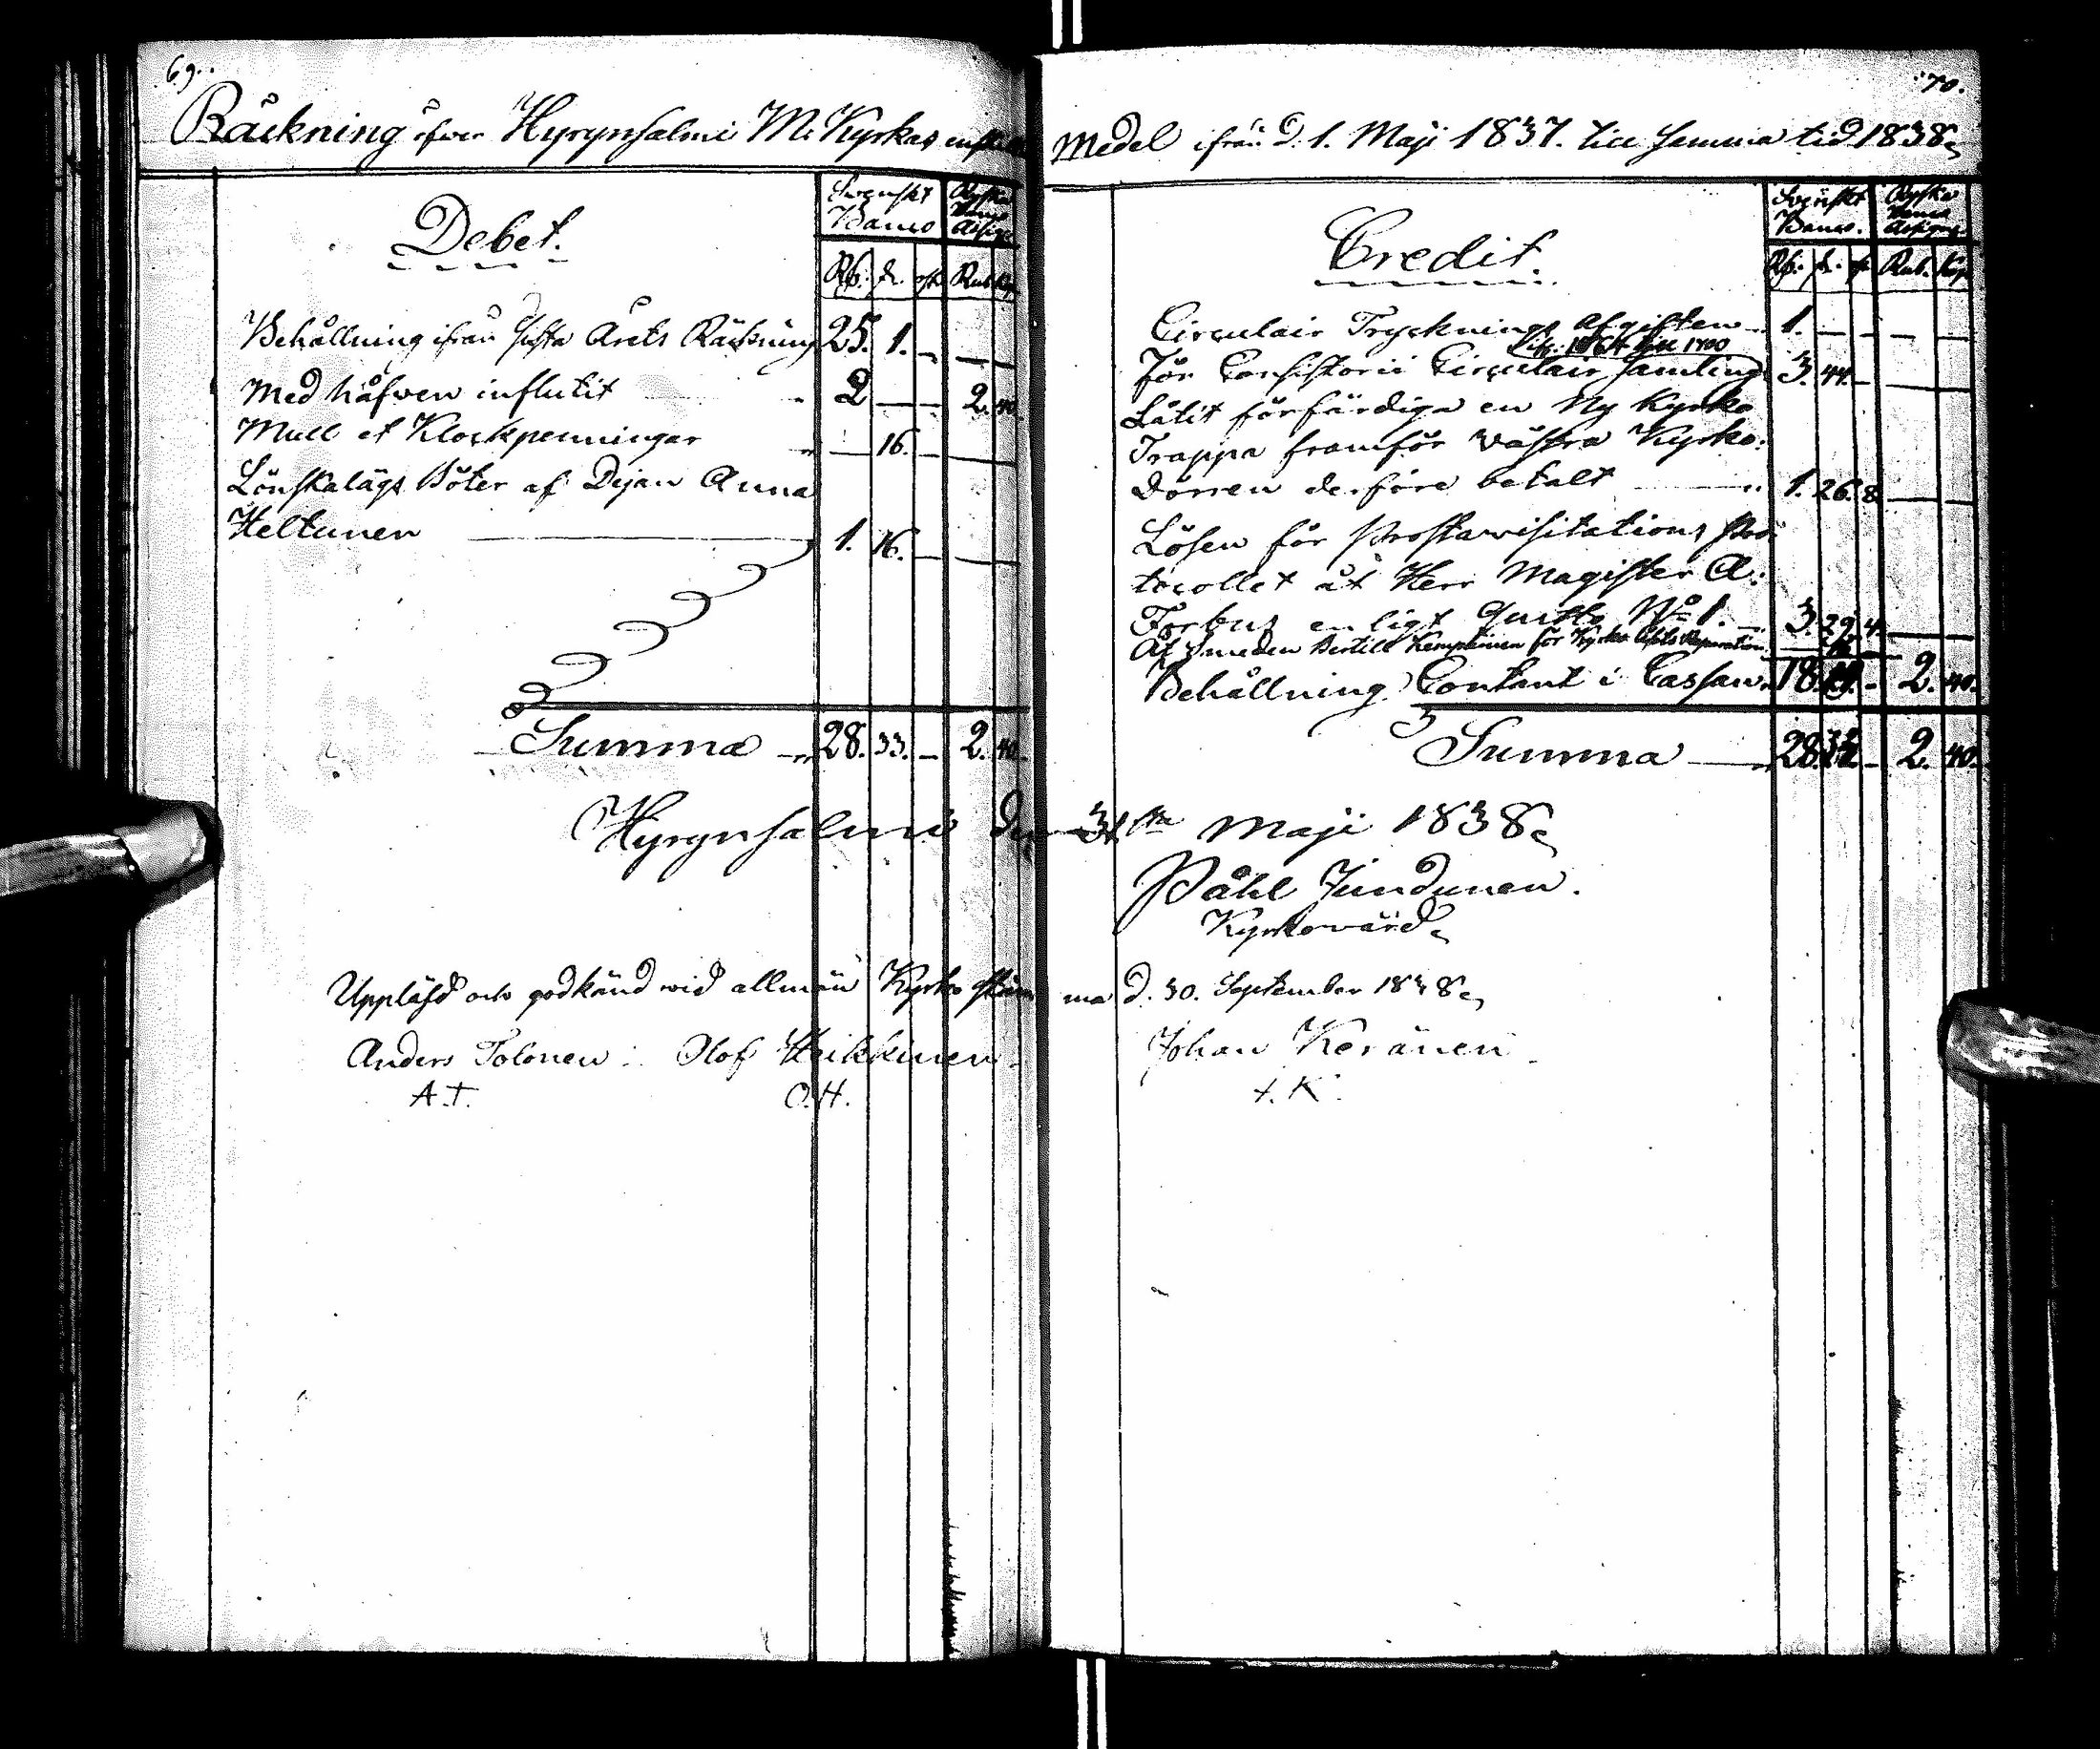 69.
Räckning öfver Hyrynsalmi M. Kyrkas
Debet.
Svenskt Banco
Ryska Banco Assign
Rß. s. rst. Rub. Kop.
Behållning ifrån sista Årets Räkning 25. 1. — — —
Med håfven influtit — 2 — — 2. 40.
Mull et Klockpenningar — 16. — — —
Lönskalägs Böter af Pigan Anna
Heltunen — 1. 16. — — —
Summa — 28. 33. — 2. 40.
Hyrynsalmi den
Uppläsd och godkänd wid allmän Kyrko stäm
Anders Tolonen Olof Heikkinen
A.T. O.H.
70.
Medel ifrån d. 1. Maji 1837. till samma tid 1838.
Credit.
Svenskt Banco.
Ryska Banco Assign
Rß. s. r. Rub. Kop
Circulair Trycknings Afgiften — 1. — — — —
ifr. 1764 till 1800
För Consistorii Circulair Samling 3. 44. — — —
Låtit förfärdiga en Ny Kyrko
Trappa framför västra Kyrko:
dörren derföre betalt — 1. 26. 8. — —
Lösen för Prostavisitations Pro
tocollet åt Herr Magister A:
Forbus enligt Quitto No 1. — 3. 29. 4. — —
Af Smeden Bertill Kemppainen för Kyrko Reparation
Behållning Contant i Cassan 18. — 2. 40.
Summa — 28. — 2. 40.
31sta Maji 1838.
Påhl Jundunen.
Kyrkovärd.
ma d. 30. September 1838.
Johan Keränen
+. K.